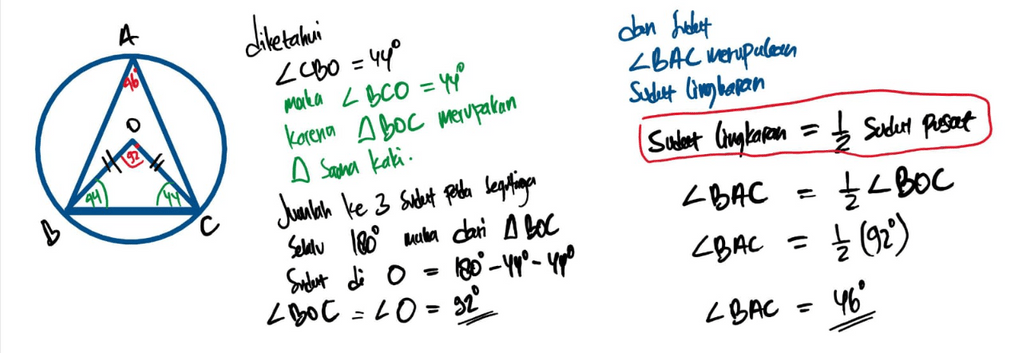 A
46°
O
92
44
44
B
C
diketahui
∠CBO = 44°
maka ∠BCO = 44°
karena △BOC merupakan
△ Sama kaki.
Jumlah ke 3 Sudut pada Segitiga
Selalu 180° maka dari △BOC
Sudut di O = 180° - 44° - 44°
∠BOC = ∠O = 92°
dan Sudut
∠BAC merupakan
Sudut lingkaran
Sudut lingkaran = 1/2 Sudut pusat
∠BAC = 1/2 ∠BOC
∠BAC = 1/2 (92°)
∠BAC = 46°